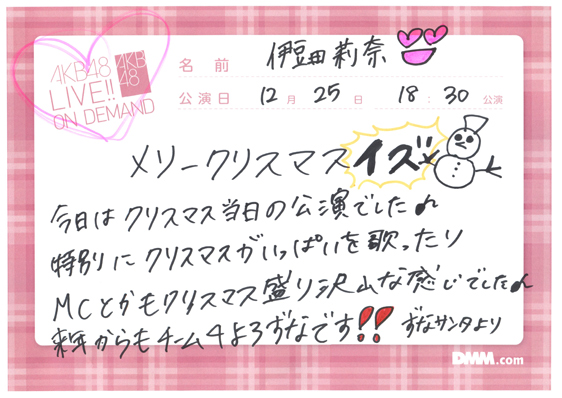 AKB48
LIVE!!
ON DEMAND
AKB
48
名前 伊豆田莉奈
公演日 12月25日 18:30公演
メリークリスマスイズ
今日はクリスマス当日の公演でした♪
特別にクリスマスがいっぱいを歌ったり
MCとかもクリスマス盛り沢山な感じでした♪
来年からもチーム4よろずなです!!
ずなサンタより
DMM.com